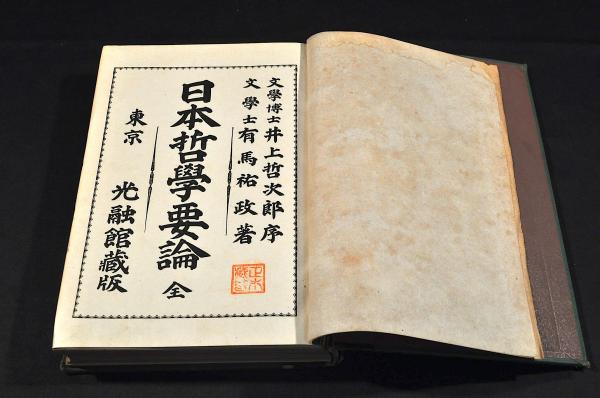 文學博士井上哲次郎序
文學士有馬祐政著
日本哲學要論 全
東京 光融館藏版